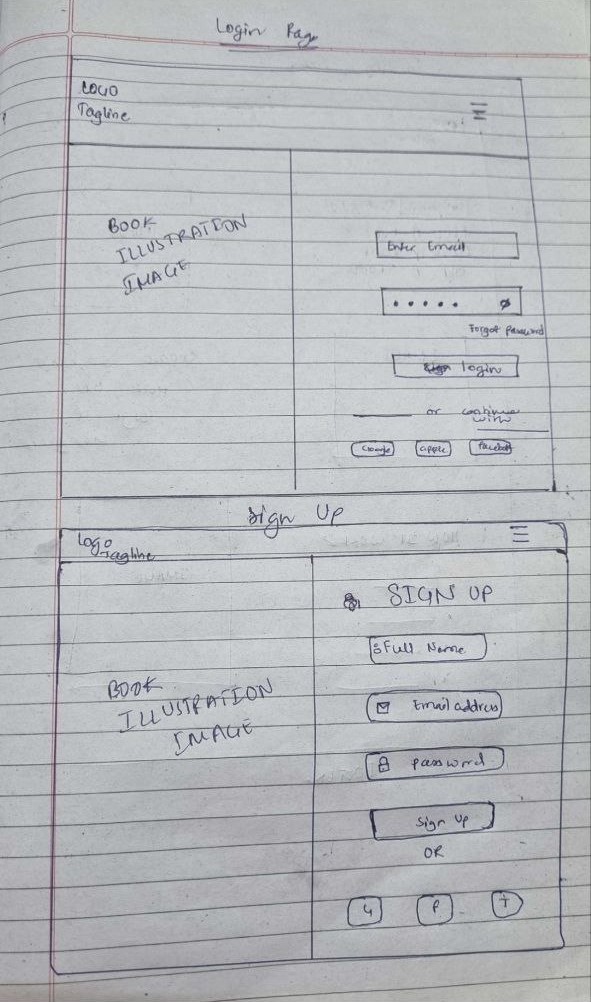 Login Page
LOGO
Tagline
BOOK
ILLUSTRATION
IMAGE
Enter Email
Forgot Password
login
or continue
with
Google apple Facebook
Sign Up
Logo
Tagline
SIGN UP
Full Name
BOOK
ILLUSTRATION
IMAGE
Email address
Password
Sign Up
OR